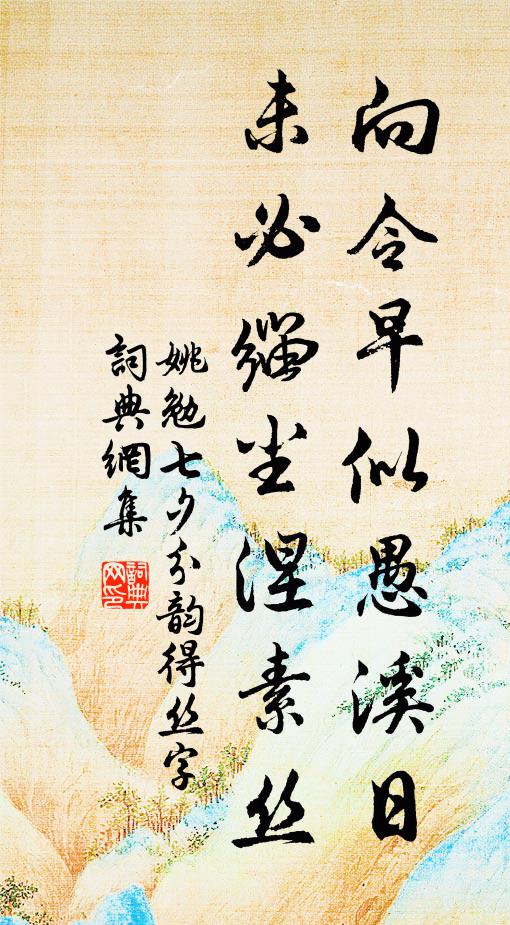 向令早似愚溪日
未必缁尘涅素丝
姚勉七夕分韵得丝字
詞典網集
詞典网印